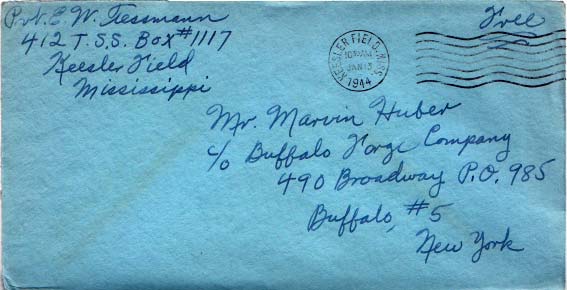 Pvt. E. W. Tessmann
412 T.S.S. Box #1117
Keesler Field
Mississippi
KEESLER FIELD, MISS.
JAN 13
1944
Free
Mr. Marvin Huber
c/o Buffalo Forge Company
490 Broadway P.O. 985
Buffalo, #5
New York